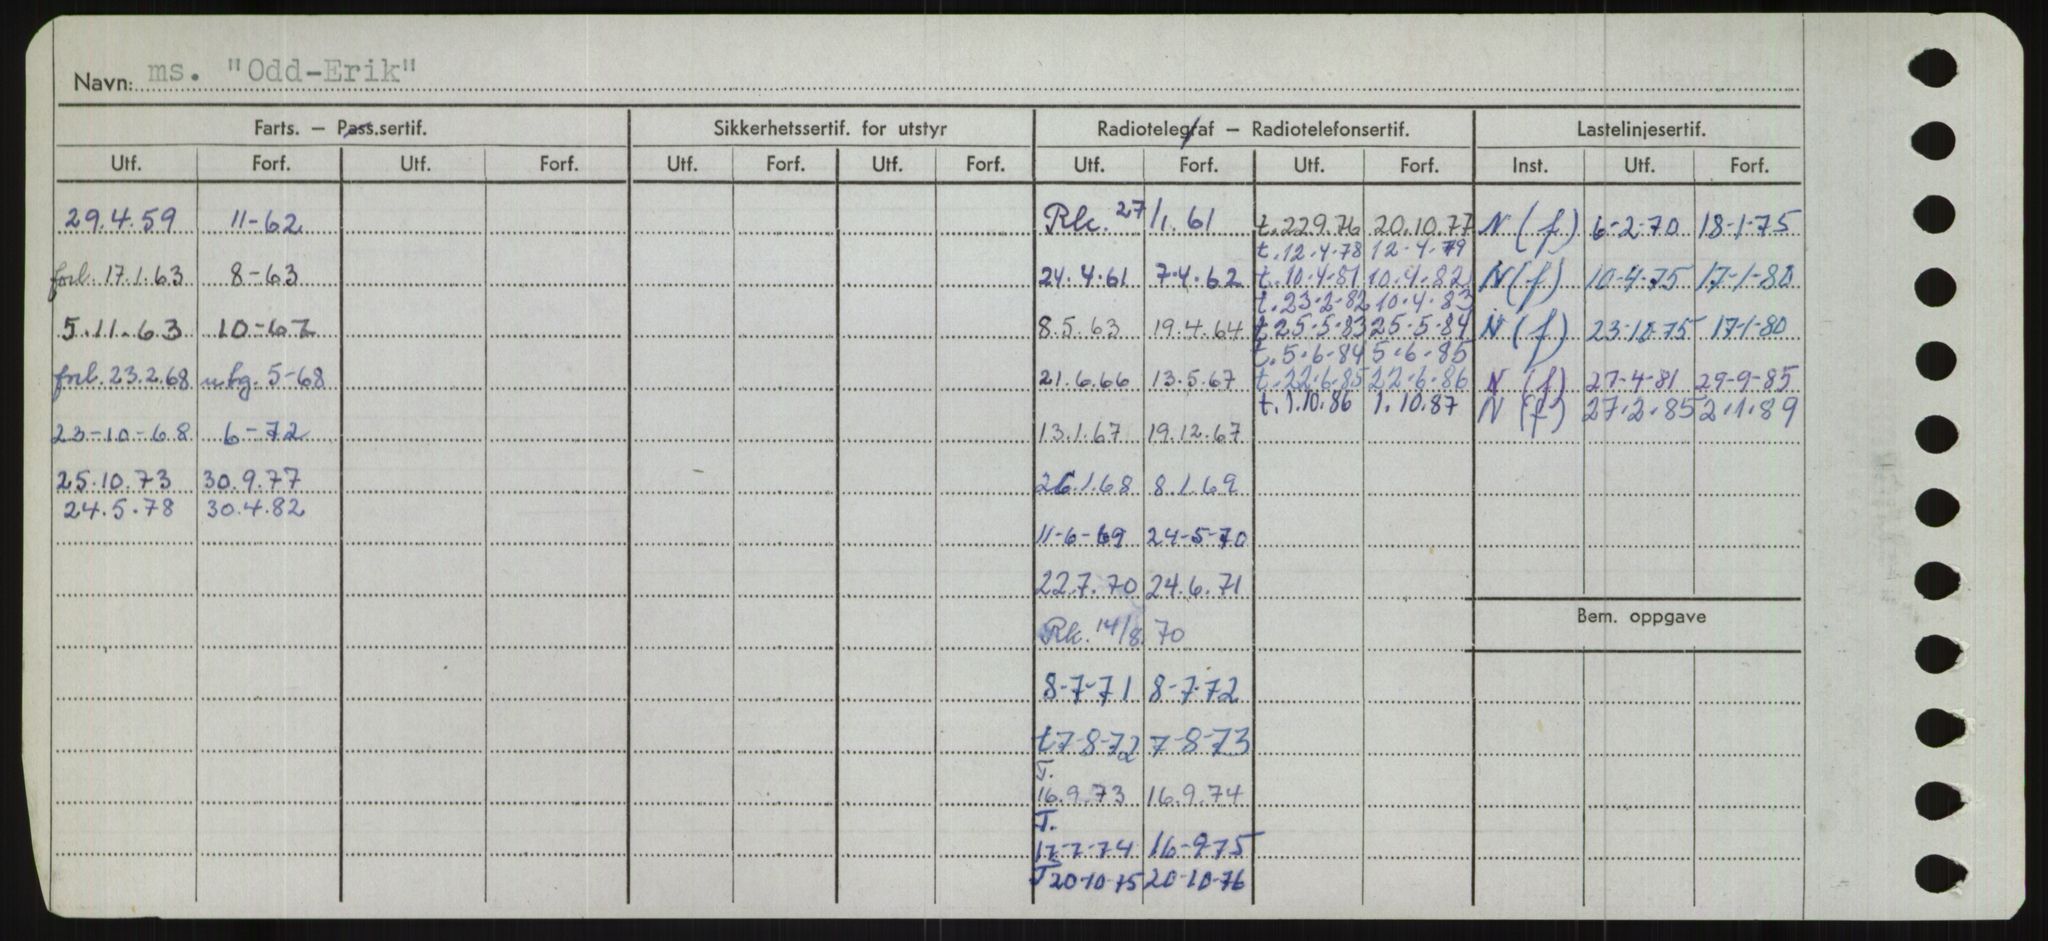 Navn: ms. "Odd-Erik"
Farts. – Pass.sertif. Sikkerhetssertif. for utstyr Radiotelegraf – Radiotelefonsertif. Lastelinjesertif.
Utf. Forf. Utf. Forf. Utf. Forf. Utf. Forf. Utf. Forf. Utf. Forf. Inst. Utf. Forf.
29.4.59 11-62 Rk. 27/1. 61 t.22.9.76 20.10.77 N (f) 6-2-70 18-1-75
t.12.4.78 12-4-79
forl. 17.1.63 8-63 24.4.61 7.4.62 t.10.4.81 10.4.82 N(f) 10-4-75 17-1-80
t.23.2.82 10.4.83
5.11.63 10-67 8.5.63 19.4.64 t.25.5.83 25.5.84 N (f) 23-10-75 17-1-80
t.5.6.84 5.6.85
forl. 23.2.68 5-68 21.6.66 13.5.67 t.22.6.85 22.6.86 N (f) 27-4-81 29-9-85
t.1.10.86 1.10.87 N (f) 27.2.85 2.1.89
23-10-68 6-72 13.1.67 19.12.67
25.10.73 30.9.77 26.1.68 8.1.69
24.5.78 30.4.82
11-6-69 24-5-70
22.7.70 24.6.71
Bem. oppgave
Rk. 14/8.70
8-7-71 8-7-72
t7-8-72 7-8-73
T.
16.9.73 16.9.74
T.
17-7-74 16-9-75
T20-10-75 20-10-76